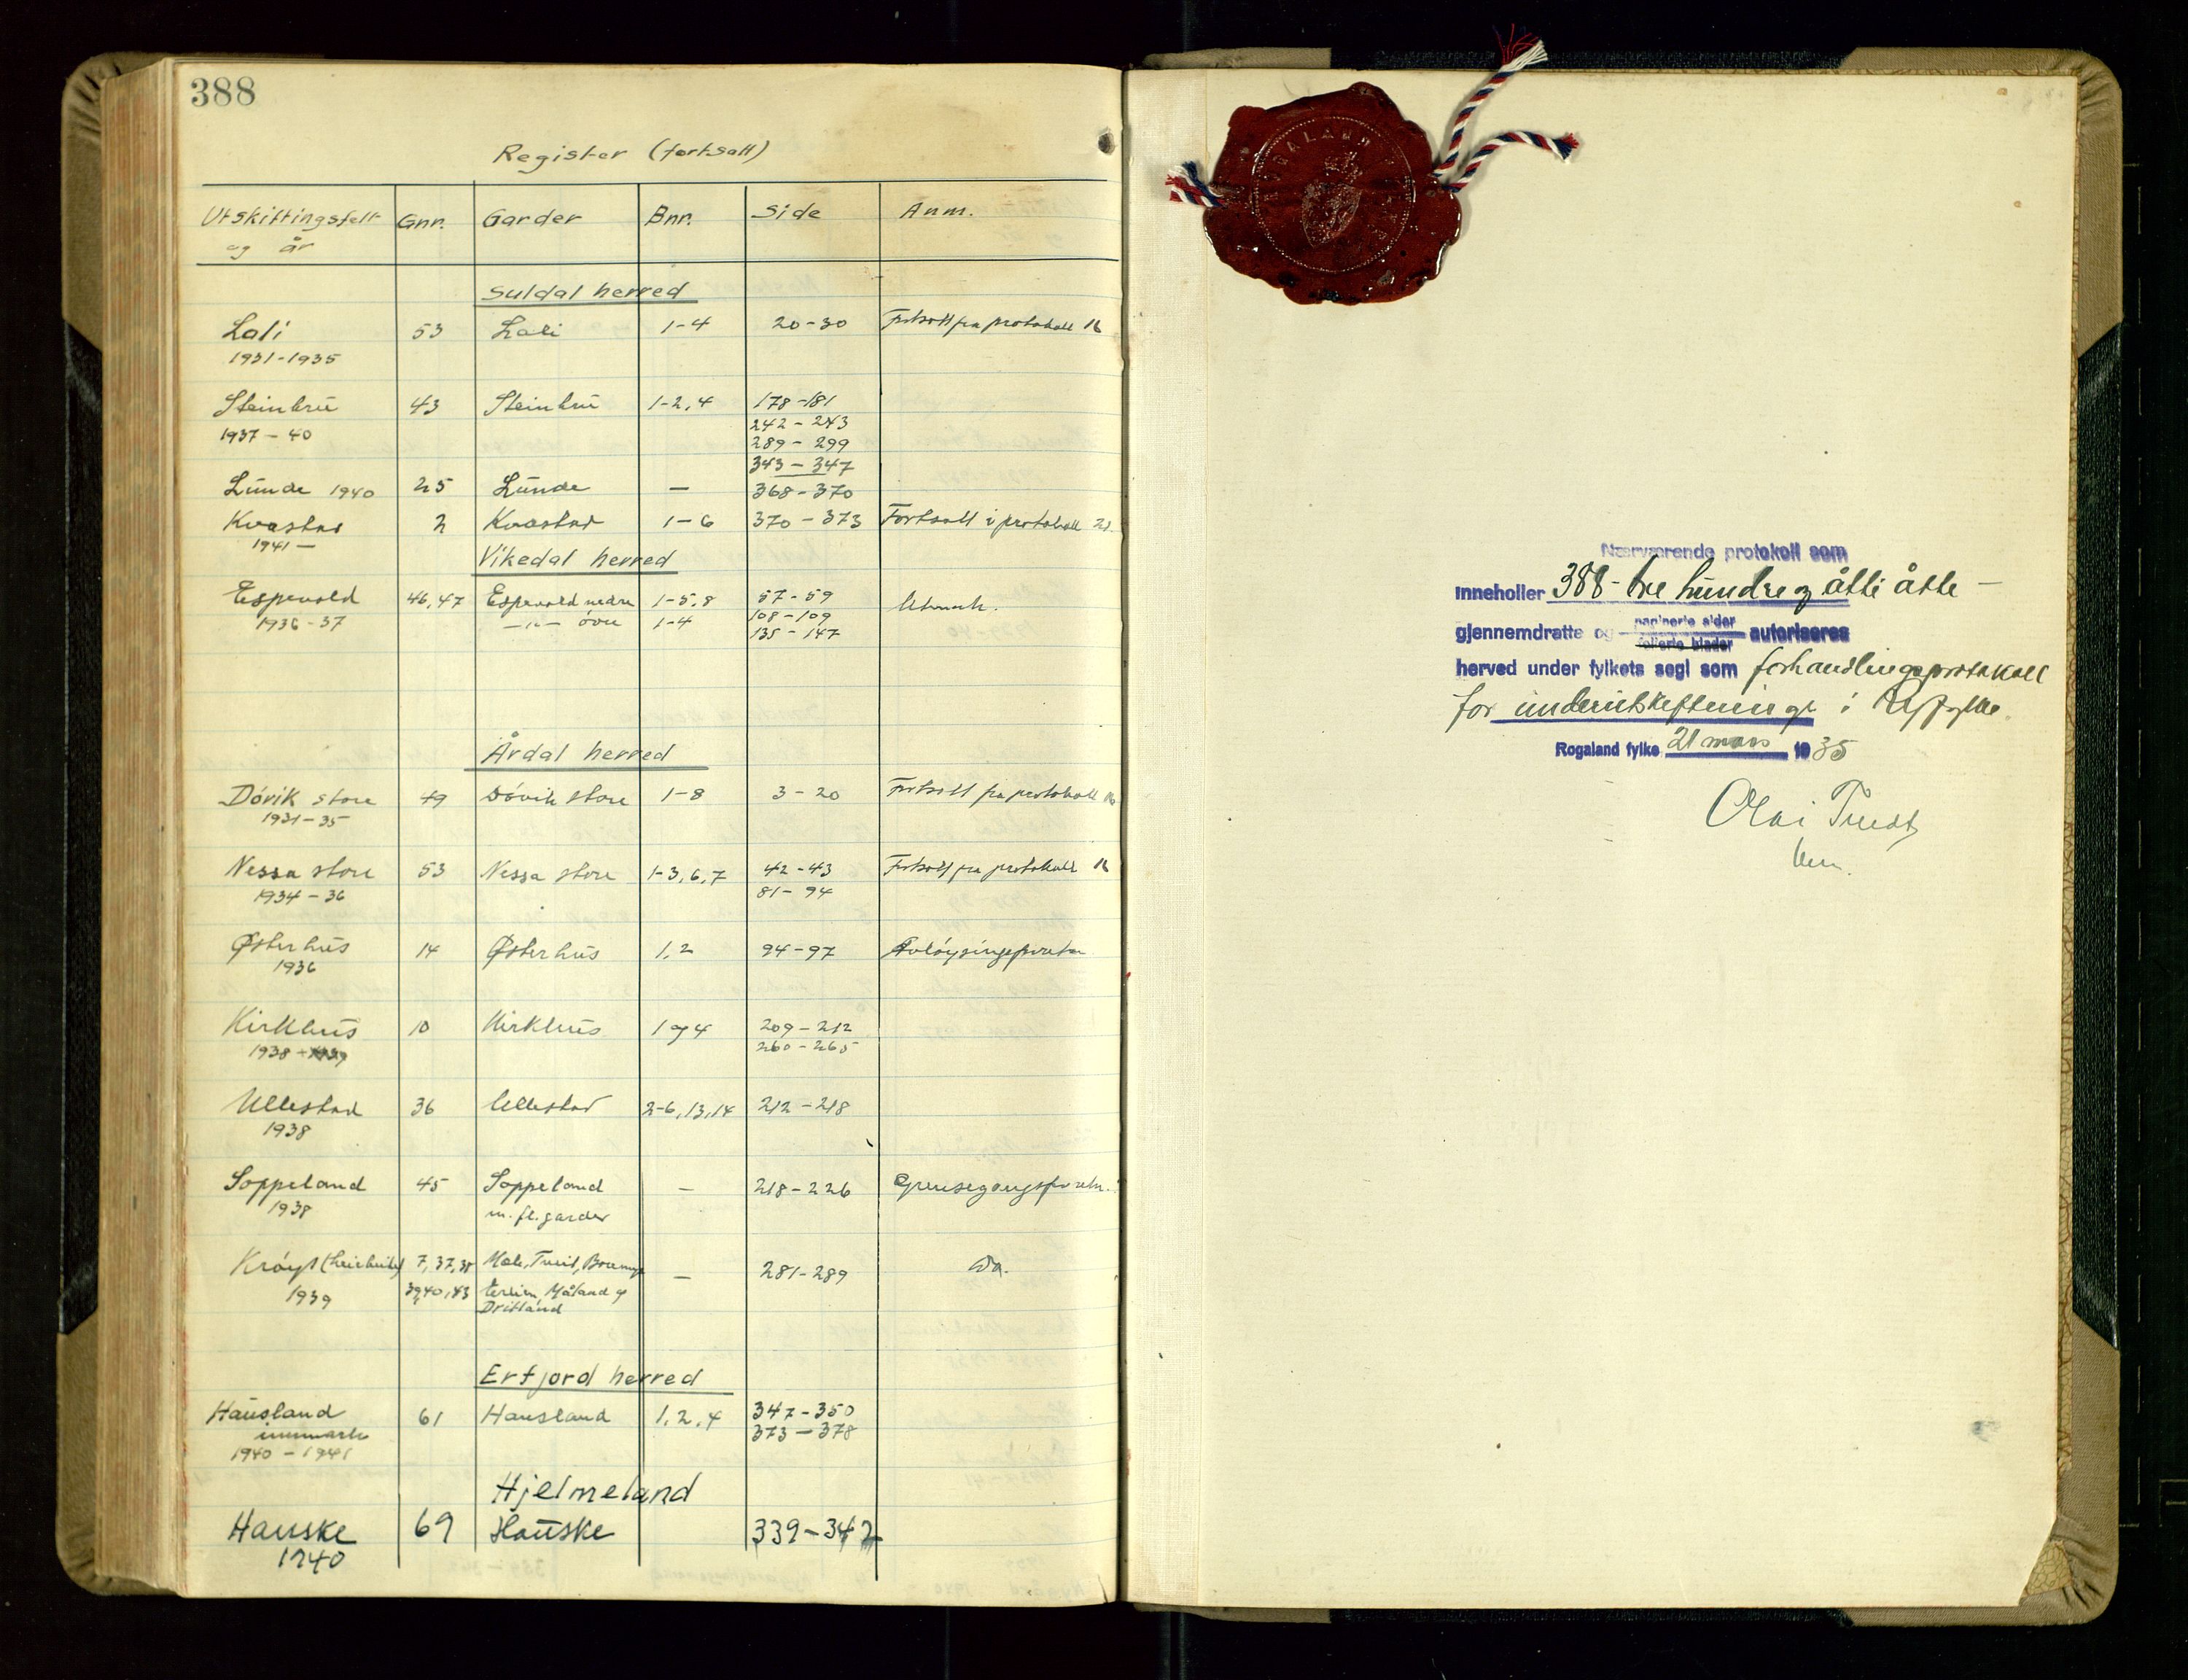 388
Register (fortsatt)
Utskiftingsfelt og år Gnr. Garder Bnr. Side Anm.
Suldal herred
Lali 53 Lali 1-4 20-30 Fortsatt fra protokoll 16
1931-1935
Steinbru 43 Steinbru 1-2, 4 178-181
1937-40 242-243
289-299
343-347
Lunde 1940 25 Lunde — 368-370
Kvastad 2 Kvastad 1-6 370-373 Fortsatt i protokoll 21.
1941 —
Vikedal herred
Espevold 46, 47 Espevold nedre 1-5, 8 57-59 Utmark.
1936-37 —"— övre 1-4 108-109
135-147
Årdal herred
Dövik store 49 Dövik store 1-8 3-20 Fortsatt fra protokoll 16
1931-35
Nessa store 53 Nessa store 1-3, 6, 7 42-43 Fortsatt fra protokoll 16
1934-36 81-94
Østerhus 14 Østerhus 1, 2 94-97
1936
Kirkhus 10 Kirkhus 1 og 4 209-212
1938 260-265
Ullestad 36 Ullestad 2-6, 13, 14 212-218
1938
Soppeland 45 Soppeland — 218-226 Grensegangsforretn.
1938 m.fl. garder
7, 37, 38 — 281-289 Do.
1939 39, 40, 43 Måland og
Erfjord herred
Hausland 61 Hausland 1, 2, 4 347-350
innmark 373-378
1940-1941
Hjelmeland
Hauske 69 Hauske 339-342
1940
ROGALAND FYLKE
Nærværende protokoll som
inneholler 388- tre hundre og åtti åtte —
gjennemdratte og paginerte sider autoriseres
follerte blader
herved under fylkets segl som forhandlingsprotokoll
for underutskiftninge i fylke.
Rogaland fylke 21 mars 1935
Olai